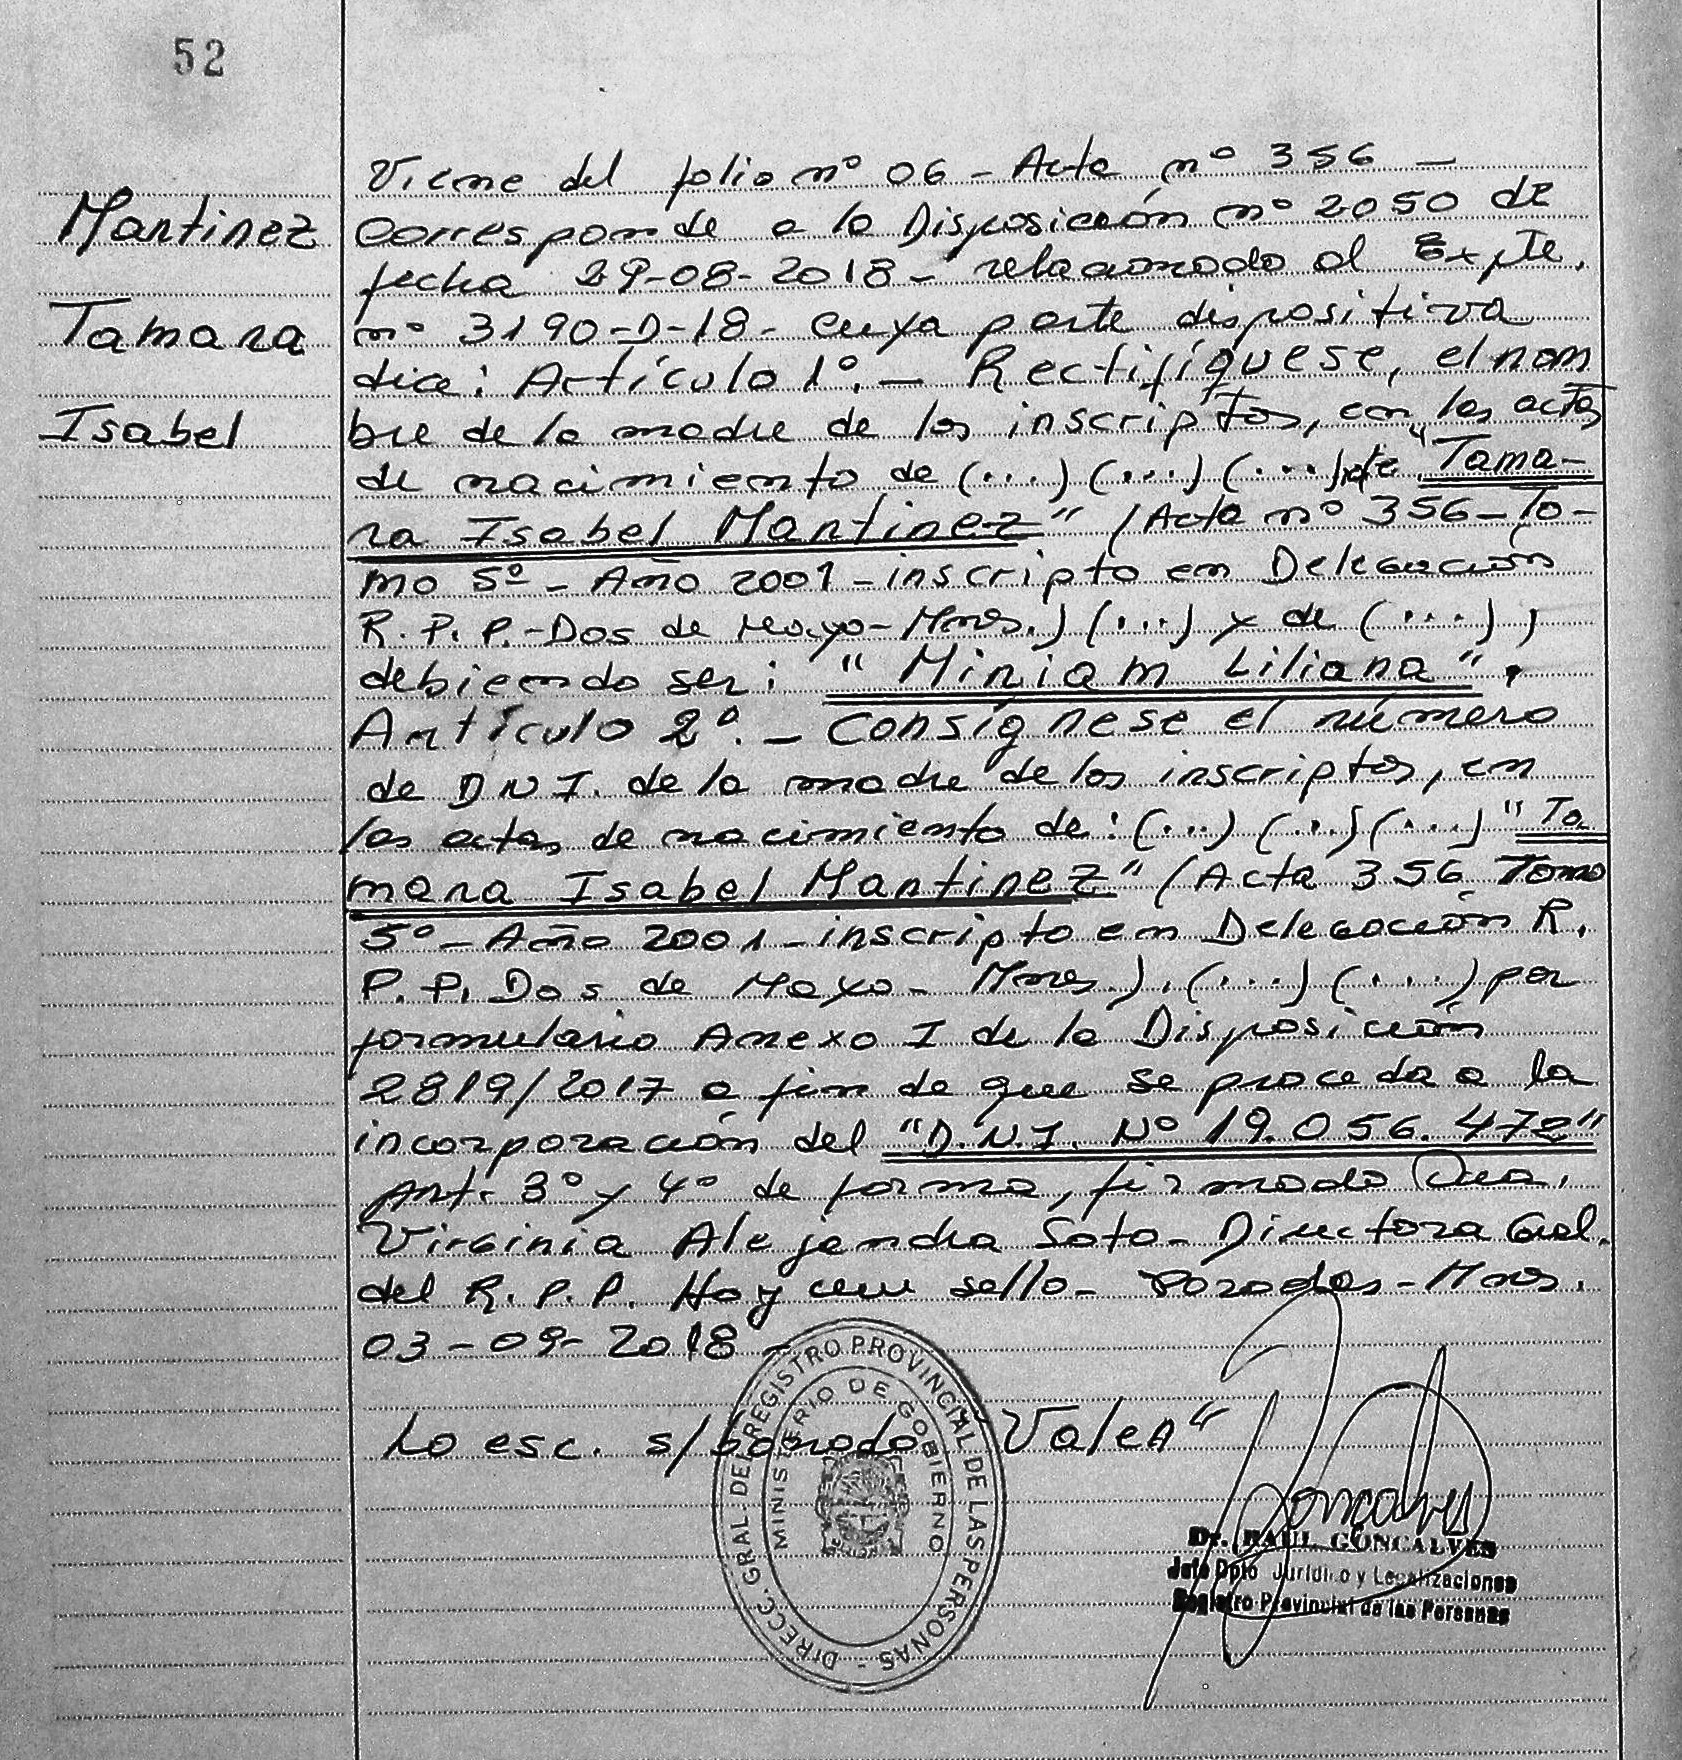 52
Martinez
Tamara
Isabel
Viene del folio nº 06 - Acta nº 356 -
Corresponde a la Disposición nº 2050 de
fecha 29-08-2018 - relacionado al Expte.
nº 3190-D-18- cuya parte dispositiva
dice: Artículo 1º. - Rectifíquese, el nom
bre de la madre de los inscriptos, en las actas
de nacimiento de (...) (...) (...) "Tama-
ra Isabel Martinez" (Acta nº 356 - To-
mo 5º - Año 2001 - inscripto en Delegación
R. P. P. - Dos de Mayo - Mnes.) (...) y de (...),
debiendo ser: "Miriam Liliana".
Artículo 2º. - Consígnese el número
de D N I. de la madre de los inscriptos, en
las actas de nacimiento de: (...) (...) (...) "Ta
mara Isabel Martinez" (Acta 356 Tomo
5º - Año 2001 - inscripto en Delegación R.
P. P. Dos de Mayo - Mnes.). (...) (...) por
formulario Anexo I de la Disposición
2819/2017 a fin de que se proceda a la
incorporación del "D.N.I. Nº 19.056.472"
Art. 3º y 4º de forma, firmado Dra.
Virginia Alejandra Soto - Directora Gral.
del R. P. P. Hay un sello - Posadas - Mnes.
03 - 09 - 2018 -
Lo esc. s/borrado "Valen"
DIRECC. GRAL. DEL REGISTRO PROVINCIAL DE LAS PERSONAS -
MINISTERIO DE GOBIERNO
Dr. RAUL GONCALVES
Jefe Dpto Jurídico y Legalizaciones
Registro Provincial de las Personas